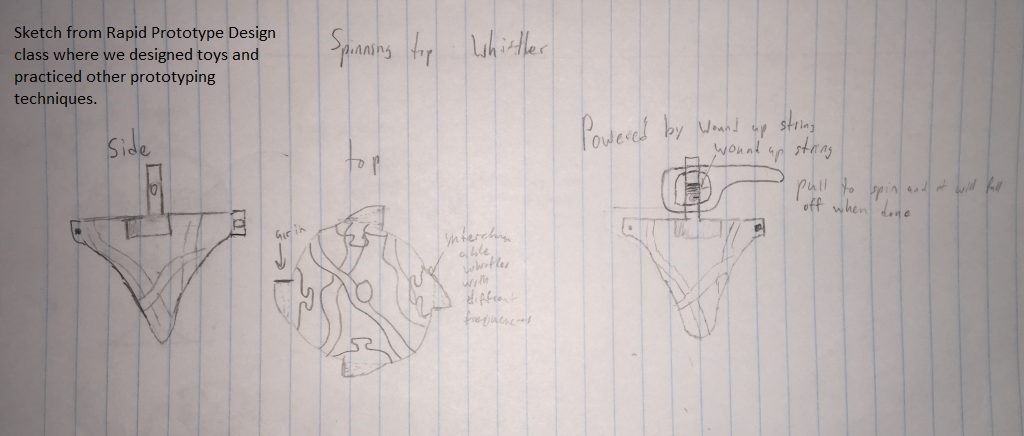 Sketch from Rapid Prototype Design
class where we designed toys and
practiced other prototyping
techniques.
Spinning top Whistler
Side
top
air in
whistles
with
different
frequencies
Powered by wound up string
wound up string
pull to spin and it will fall
off when done